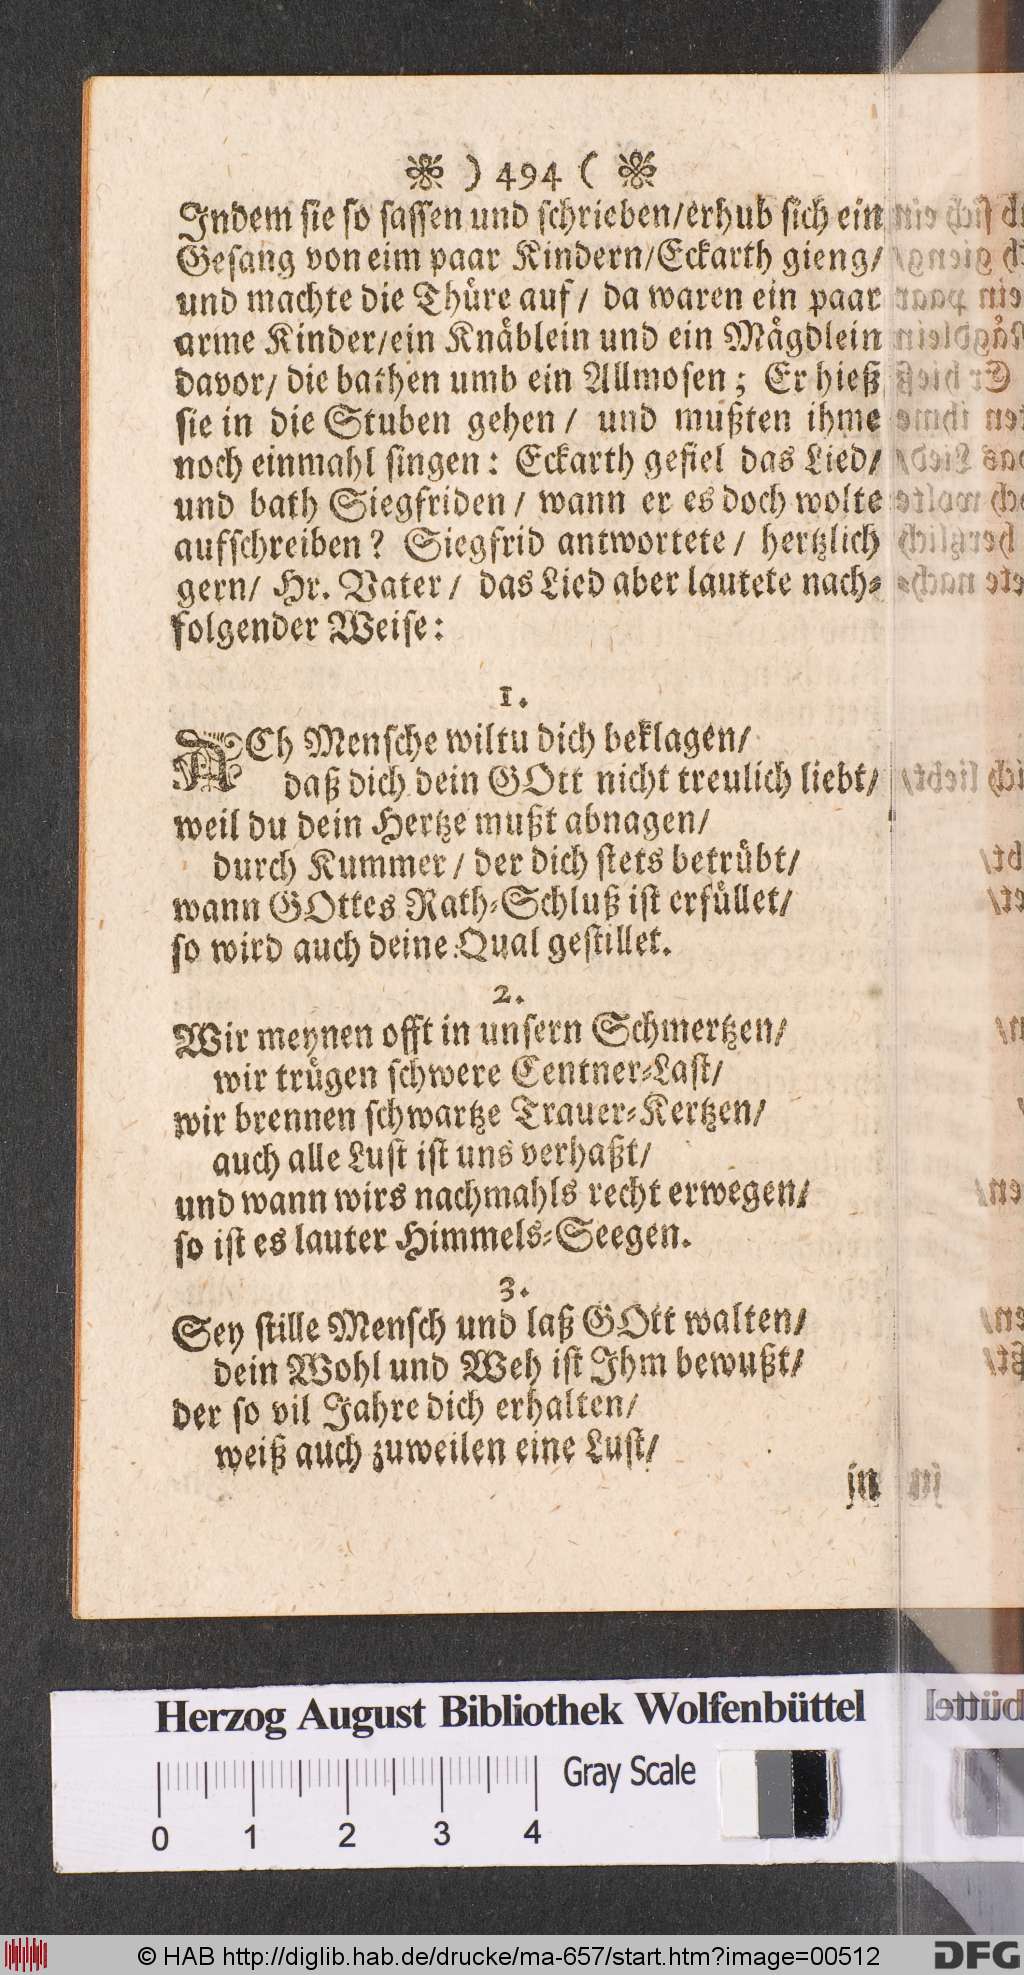 ) 494 (
Indem sie so sassen und schrieben/erhub sich ein
Gesang von eim paar Kindern/Eckarth gieng/
und machte die Thüre auf/ da waren ein paar
arme Kinder/ein Knäblein und ein Mägdlein
davor/ die bathen umb ein Allmosen; Er hieß
sie in die Stuben gehen/ und mußten ihme
noch einmahl singen: Eckarth gefiel das Lied/
und bath Siegfriden/ wann er es doch wolte
aufschreiben? Siegfrid antwortete/ hertzlich
gern/ Hr. Vater/ das Lied aber lautete nach-
folgender Weise:
1.
ACh Mensche wiltu dich beklagen/
daß dich dein GOtt nicht treulich liebt/
weil du dein Hertze mußt abnagen/
durch Kummer/ der dich stets betrübt/
wann GOttes Rath-Schluß ist erfüllet/
so wird auch deine Qual gestillet.
2.
Wir meynen offt in unsern Schmertzen/
wir trügen schwere Centner-Last/
wir brennen schwartze Trauer-Kertzen/
auch alle Lust ist uns verhaßt/
und wann wirs nachmahls recht erwegen/
so ist es lauter Himmels-Seegen.
3.
Sey stille Mensch und laß GOtt walten/
dein Wohl und Weh ist Ihm bewußt/
der so vil Jahre dich erhalten/
weiß auch zuweilen eine Lust/
in
Herzog August Bibliothek Wolfenbüttel
Gray Scale
0 1 2 3 4
© HAB http://diglib.hab.de/drucke/ma-657/start.htm?image=00512
DFG